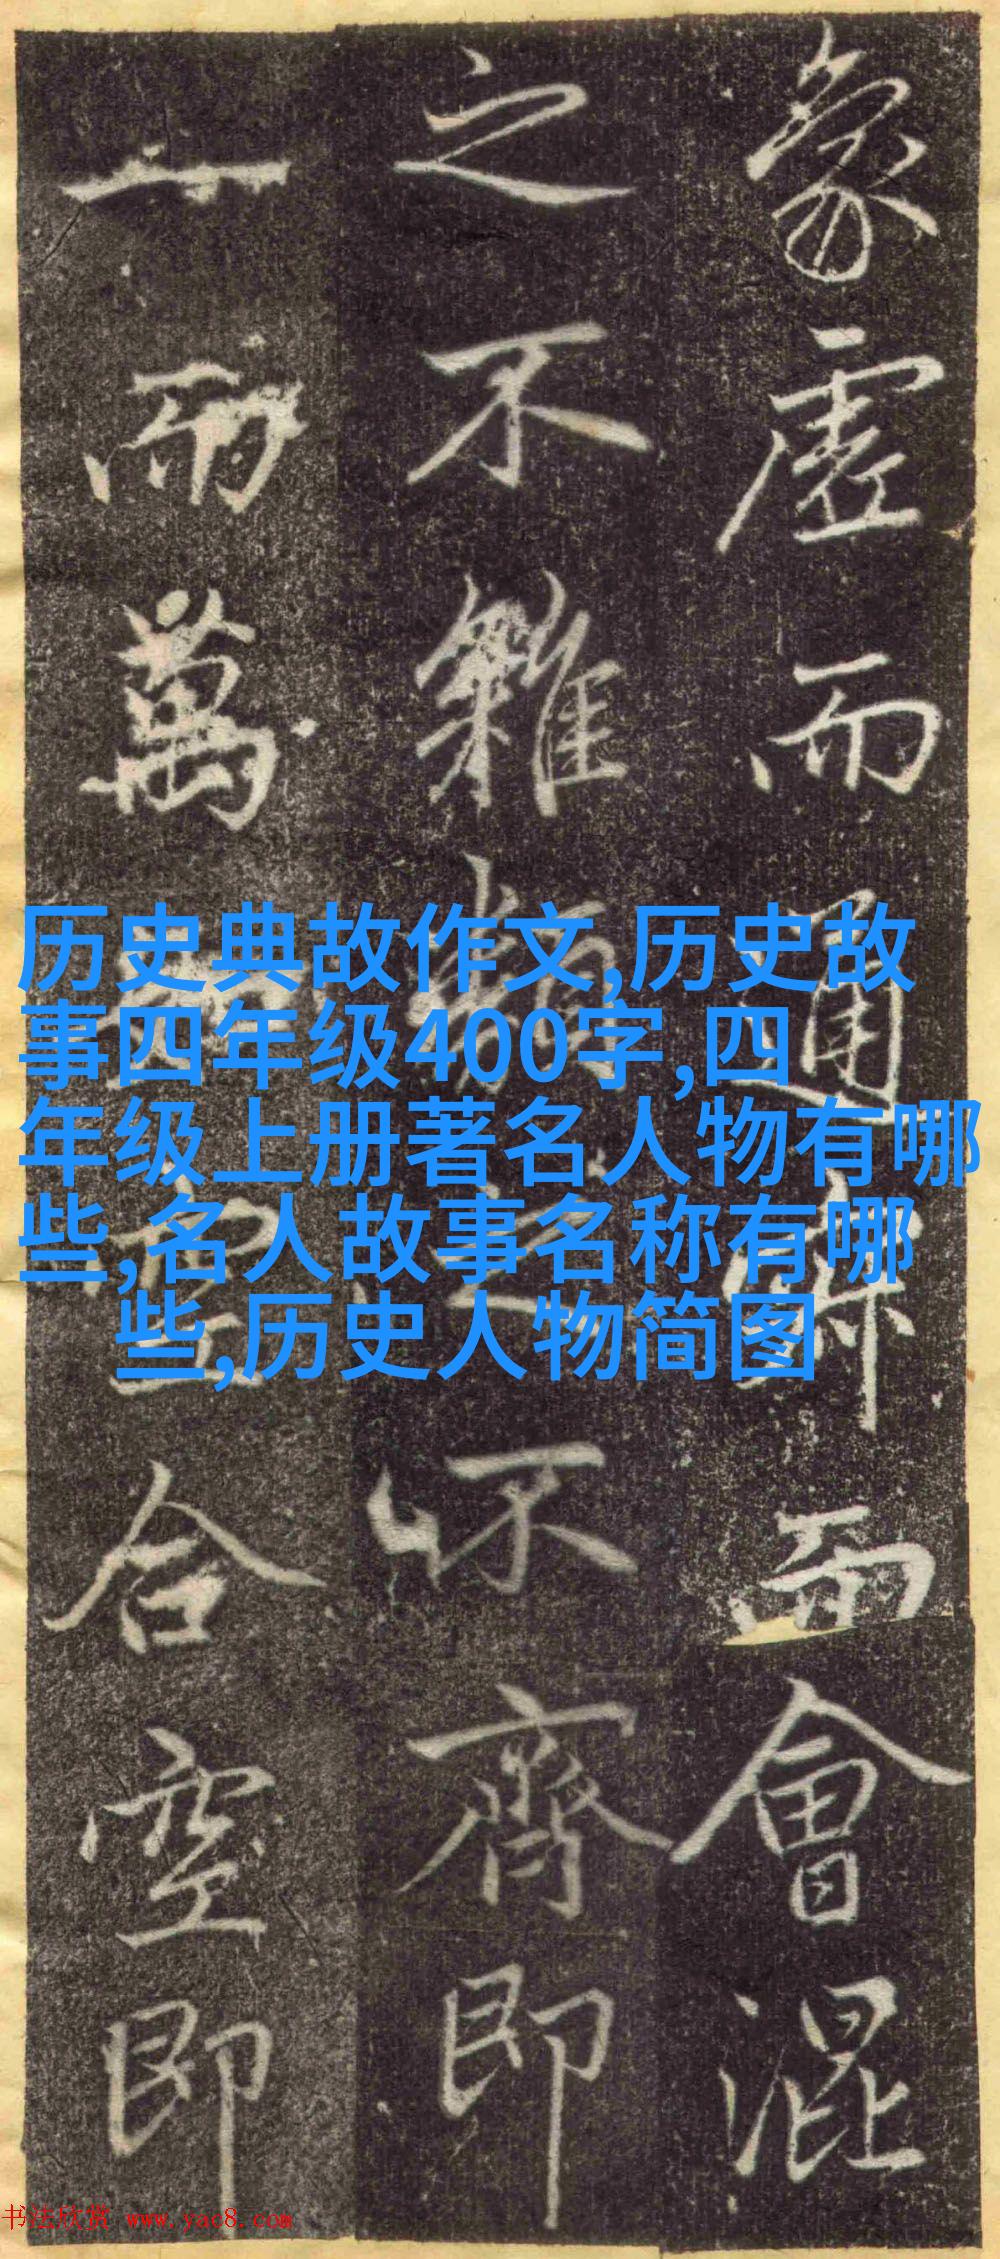 象虛而通緣而會混
之不雜類之不齊即
一而萬
合空即
历史典故作文,历史故
事四年级400字,四
年级上册著名人物有哪
些,名人故事名称有哪
些,历史人物简图
书法欣赏 www.yac8.com